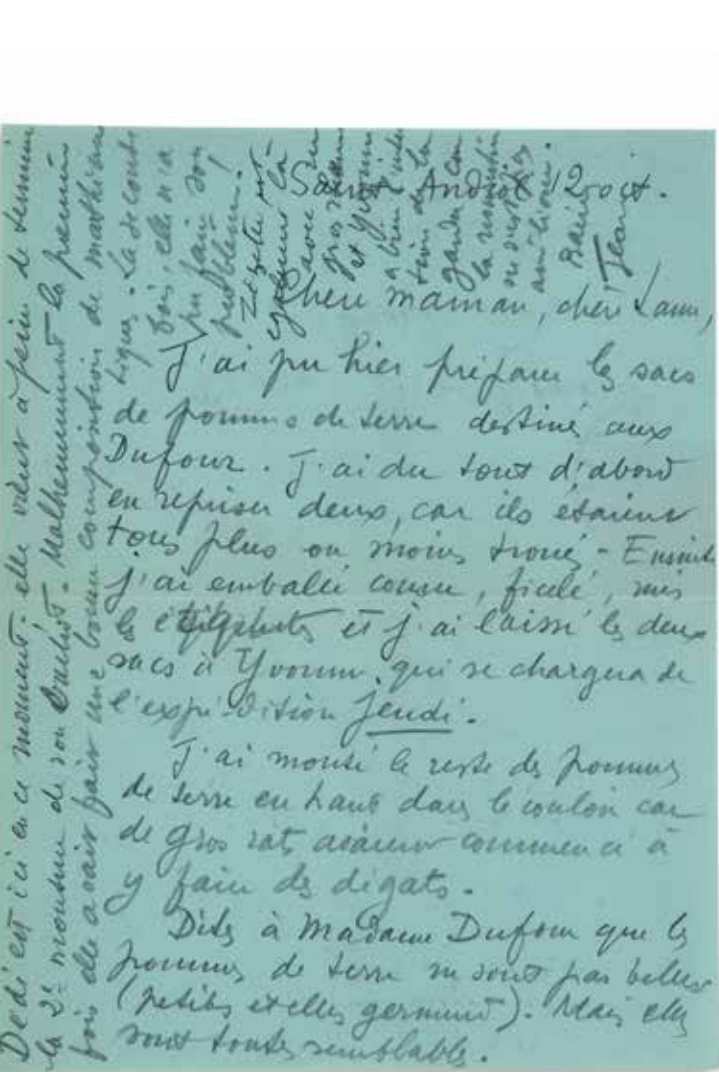 Saint Andiol 12 oct.
Chère maman, chère
J'ai pu hier préparer les sacs
de pommes de terre destinés aux
Dufour. J'ai du tout d'abord
en repriser deux, car ils étaient
tous plus ou moins troués - Ensuite
j'ai emballé cousu, ficelé, mis
les étiquettes et j'ai laissé les deux
sacs à Yvonne, qui se chargera de
l'expédition jeudi.
J'ai monté le reste des pommes
de terre en haut dans le couloir car
de gros rats avaient commencé à
y faire des dégats.
Dites à Madame Dufour que les
pommes de terre ne sont pas belles
(petites et elles germent). Mais elles
sont toutes semblables.
Dedi est ici en ce moment. elle vient à peine de terminer
la 2e de son Bachot. Malheureusement la première
fois elle avait fait une bonne composition de mathéma
tiques. La seconde
fois, elle n'a
pu faire son
problème!
Zézette est
là
avec un
gros
et Yvonne
a bien l'inten
tion de la
garder car
la
ne s'est pas
améliorée.
Baisers
Jean